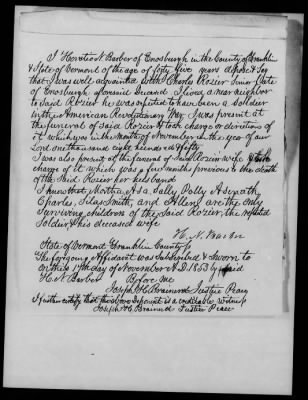 I Horatio N Barber of Enosburgh in the County of Franklin
& State of Vermont of the age of forty five years depose & Say
that I was well acquainted with Charles Rozier Senior, late
of Enosburgh aforesaid Deceased I lived a near neighbor
to said Rozier he was reputed to have been a soldier
in the American Revolutionary War, I was present at
the funeral of said Rozier & took charge or directions of
it which was in the month of November in the year of our
Lord one thousand eight hundred & fifty
I was also present at the funeral of said Rozier wife & took
charge of it which was a few months previous to the death
of the said Rozier her husband
I know that Martha, Asa, Sally, Polly,
Charles, Silas, Smith, and Allen are the only
surviving children of the said Rozier, the reputed
Soldier, & his deceased wife
H. N. Barber
State of Vermont Franklin County ss
The foregoing Affidavit was Subscribed & Sworn to
on this 17th day of November A.D. 1853 by said
H. N. Barber Before me
Joseph H Brainerd Justice Peace
I further certify that the above Deponent is a creditable witness
Joseph H Brainerd Justice Peace